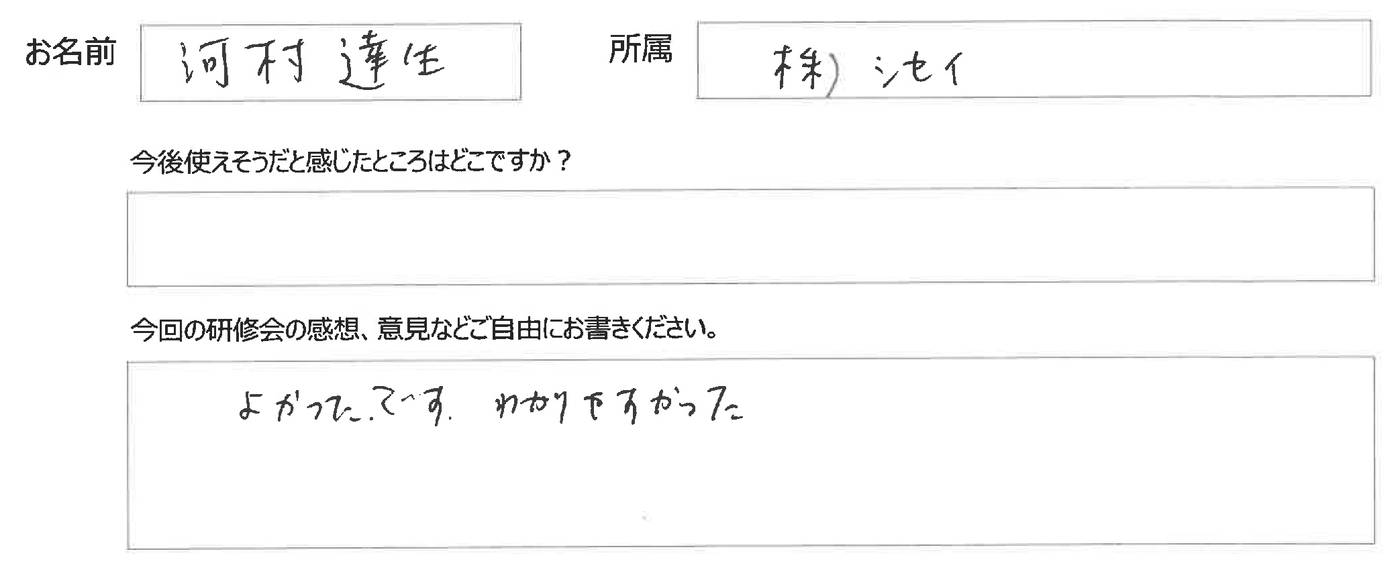 お名前 河村達生 所属 株) シセイ
今後使えそうだと感じたところはどこですか？
今回の研修会の感想、意見などご自由にお書きください。
よかった.です. わかりやすかった